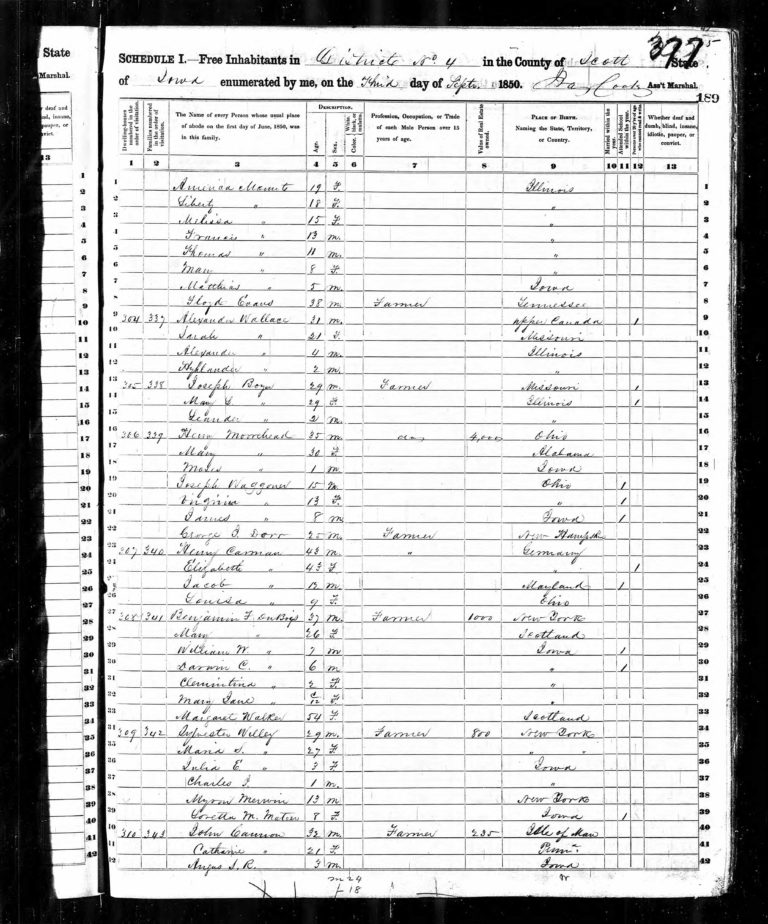 State
Marshal.
13
377 5
SCHEDULE I.—Free Inhabitants in District No 4 in the County of Scott State
of Iowa enumerated by me, on the Third day of Septr 1850. Ass't Marshal.
189
Dwelling-houses numbered in the order of visitation.
Families numbered in the order of visitation.
The Name of every Person whose usual place of abode on the first day of June, 1850, was in this family.
DESCRIPTION.
Age.
Sex.
Color, White, black, or mulatto.
Profession, Occupation, or Trade of each Male Person over 15 years of age.
Value of Real Estate owned.
PLACE OF BIRTH. Naming the State, Territory, or Country.
Married within the year.
Attended School within the year.
Whether deaf and dumb, blind, insane, idiotic, pauper, or convict.
1 2 3 4 5 6 7 8 9 10 11 12 13
1 America 19 F. Illinois 1
2 Liberty " 18 F. " 2
3 Melissa " 15 F. " 3
4 Francis " 13 m. " 4
5 Thomas " 11 m. " 5
6 Mary " 8 F. " 6
7 Matthias " 5 m. Iowa 7
8 Floyd Evans 38 m. Farmer Tennessee 8
9 304 337 Alexander Wallace 31 m. upper Canada 1 9
10 Sarah " 21 F. Missouri 10
11 Alexander " 4 m. Illinois 11
12 Hylander " 2 m. " 12
13 305 338 Joseph Boyer 29 m. Farmer Missouri 1 13
14 Mary L. " 29 F. Illinois 1 14
15 Leander " 2 m. " 15
16 306 339 Henry Moorehead 35 m. do 4,000 Ohio 16
17 Mary " 30 F. Alabama 17
18 Moses " 1 m Iowa 18
19 Joseph Waggoner 15 m. Ohio 1 19
20 Virginia " 13 F. " 1 20
21 James " 8 m Iowa 1 21
22 George J. Dorr 25 m. Farmer New Hampsh 22
23 307 340 Henry Carman 43 m. " Germany 23
24 Elizabeth " 43 F " 1 24
25 Jacob " 12 m. Mayland 1 25
26 Louisa " 9 F. Ohio 26
27 308 341 Benjamin F. 37 m. Farmer 1000 New York 27
28 Mary " 26 F Scotland 28
29 William W. " 7 m Iowa 1 29
30 Darwin C. " 6 m " 1 30
31 Clementina " 2 F. " 31
32 Mary Jane " /12 F. " 32
33 Margaret Walker 54 F. Scotland 33
34 309 342 Sylvester Willey 29 m. Farmer 800 New York 34
35 Maria S. " 27 F. " " 35
36 Julia E. " 3 F. Iowa 36
37 Charles J. 1 m. " 37
38 Myron Merwin 13 m New York 38
39 Loretta M. 8 F. Iowa 1 39
40 310 343 John Cannon 32 m. Farmer 235 Isle of Man 40
41 Catharine " 21 F. Penna 41
42 Angus S. R. 3 m. Iowa 42
m 24
f 18